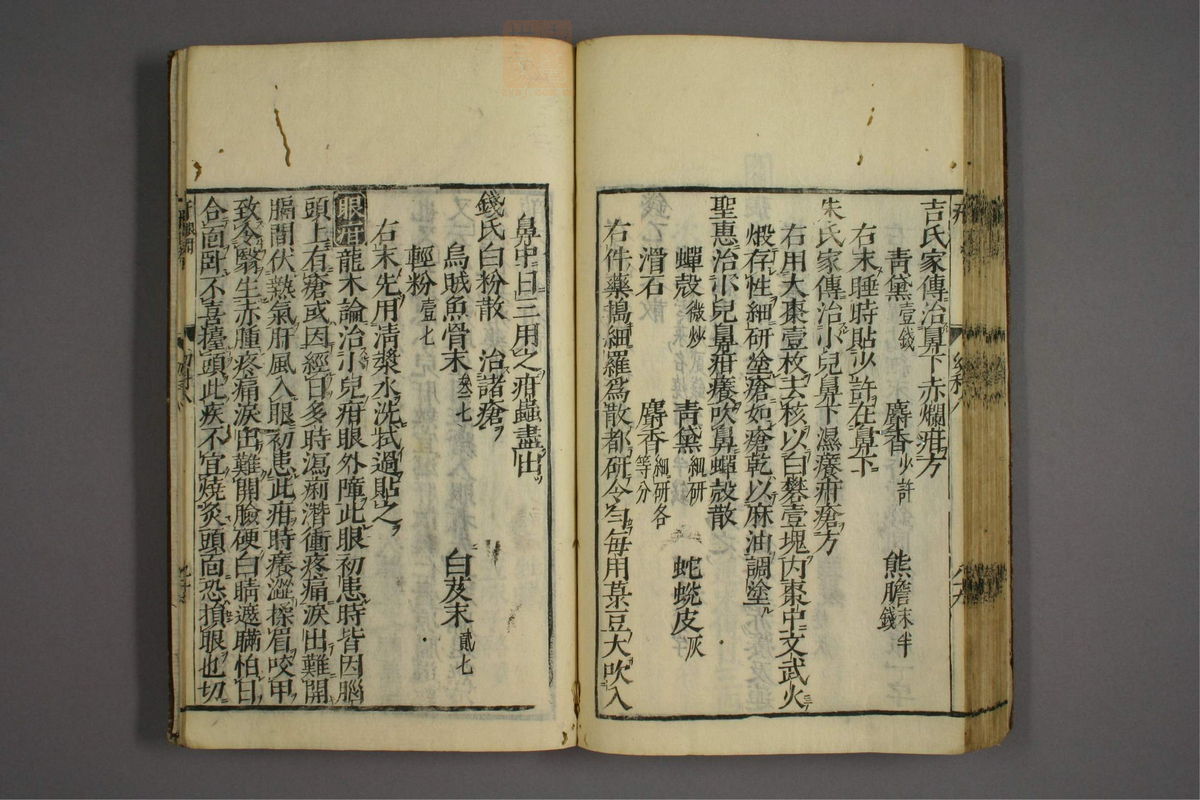 吉氏家傳治鼻下赤爛疳方
青黛壹錢 麝香少許 熊膽末半錢
右末睡時貼少許在鼻下
朱氏家傳治小兒鼻下濕癢疳瘡方
右用大棗壹枚去核以白礬壹塊內棗中文武火
煅存性細研塗瘡如瘡乾以麻油調塗
聖惠治小兒鼻疳癢吹鼻蟬殼散
蟬殼微炒 青黛細研 蛇蛻皮灰
滑石 麝香細研各等分
右件藥搗細羅爲散都研令勻每用菉豆大吹入
鼻中日三用之疳蟲盡出
錢氏白粉散 治諸瘡
烏賊魚骨末叄七 白芨末貳七
輕粉壹七
右末先用淸漿水洗拭過貼之
眼疳龍木論治小兒疳眼外障此眼初患時皆因腦
頭上有瘡或因經日多時瀉痢潛衝疼痛淚出難開
膈間伏熱氣肝風入眼初患此疳時癢澀揉眉咬甲
致令翳生赤腫疼痛淚出難開臉硬白睛遮瞞怕日
合面臥不喜擡頭此疾不宜燒灸頭面恐損眼也切